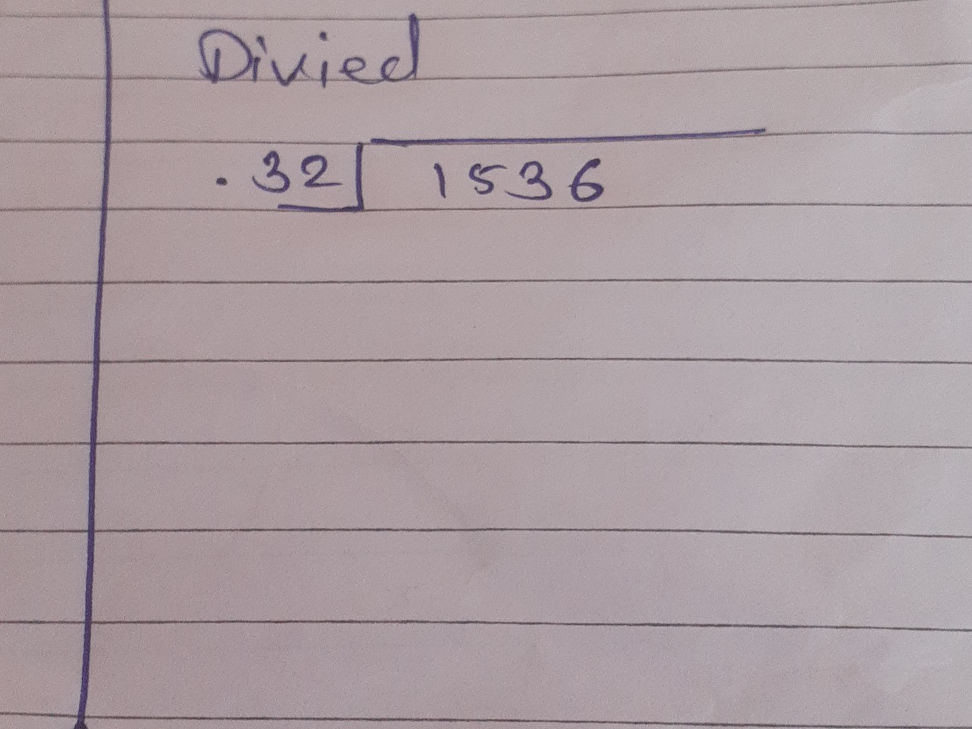 Divied
.32 1536